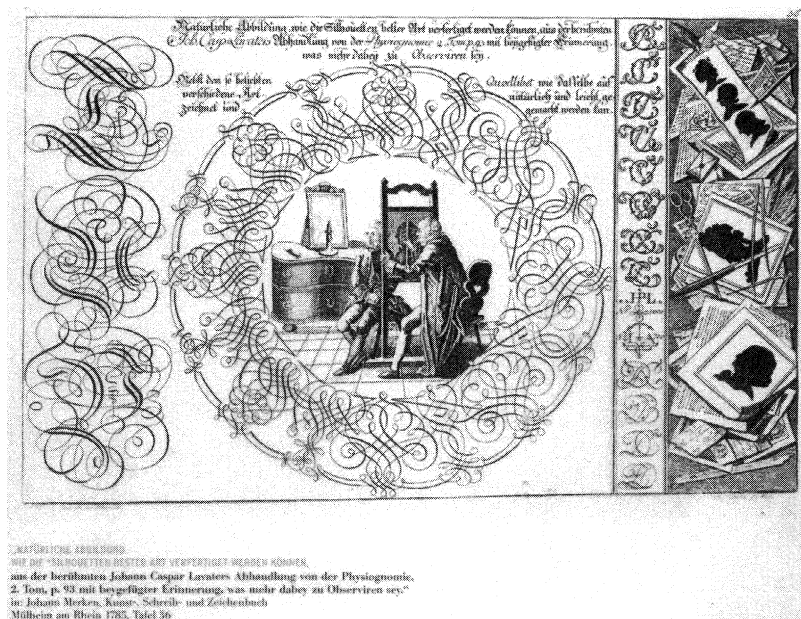 Natürliche Abbildung, wie die Silhouetten bester Art verfertiget werden können, aus der berühmten
Joh. Casp. Lavaters Abhandlung von der Physiognomie 2. Tom. p. 93 mit beygefügter Erinnerung,
was mehr dabey zu Observiren sey.
Nebst den so beliebten
verschiedene Art
zeichnet und
Quodlibet wie dasselbe auf
natürlich und leicht ge-
gemacht werden kan.
JPL.
„NATÜRLICHE ABBILDUNG
WIE DIE “SILHOUETTEN BESTER ART VERFERTIGET WERDEN KÖNNEN,
aus der berühmten Johann Caspar Lavaters Abhandlung von der Physiognomie,
2. Tom, p. 93 mit beygefügter Erinnerung, was mehr dabey zu Observiren sey.“
in: Johann Merken, Kunst-, Schreib- und Zeichenbuch
Mülheim am Rhein 1785, Tafel 56